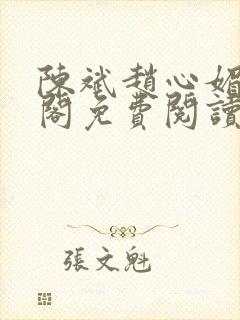 陳斌趙心媚
閣免費閱讀
張文魁